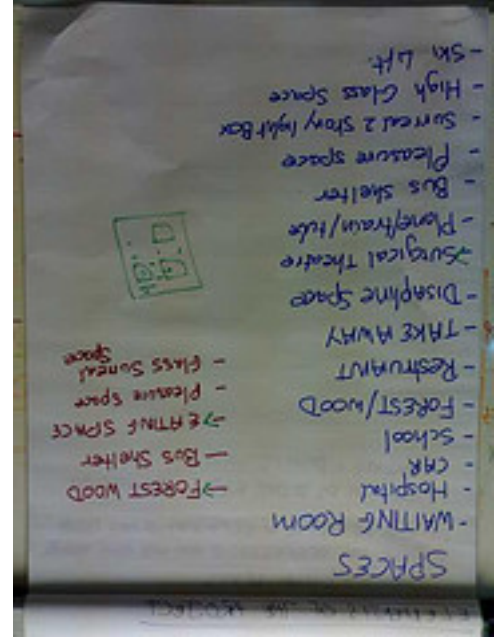 ELEMENTS OF THE PROJECT
SPACES
- WAITING ROOM
- Hospital
- CAR
- School
- FOREST/WOOD
- Restruant
- TAKE AWAY
- Disapline Space
→ Surgical Theatre
- Plane/train/tube
- Bus Shelter
- Pleasure space
- Surreal 2 Story light Box
- High Glass Space
- Ski Lift.
→ FOREST WOOD
- Bus Shelter
→ EATING SPACE
- Pleasure space
- Glass Surreal
Space